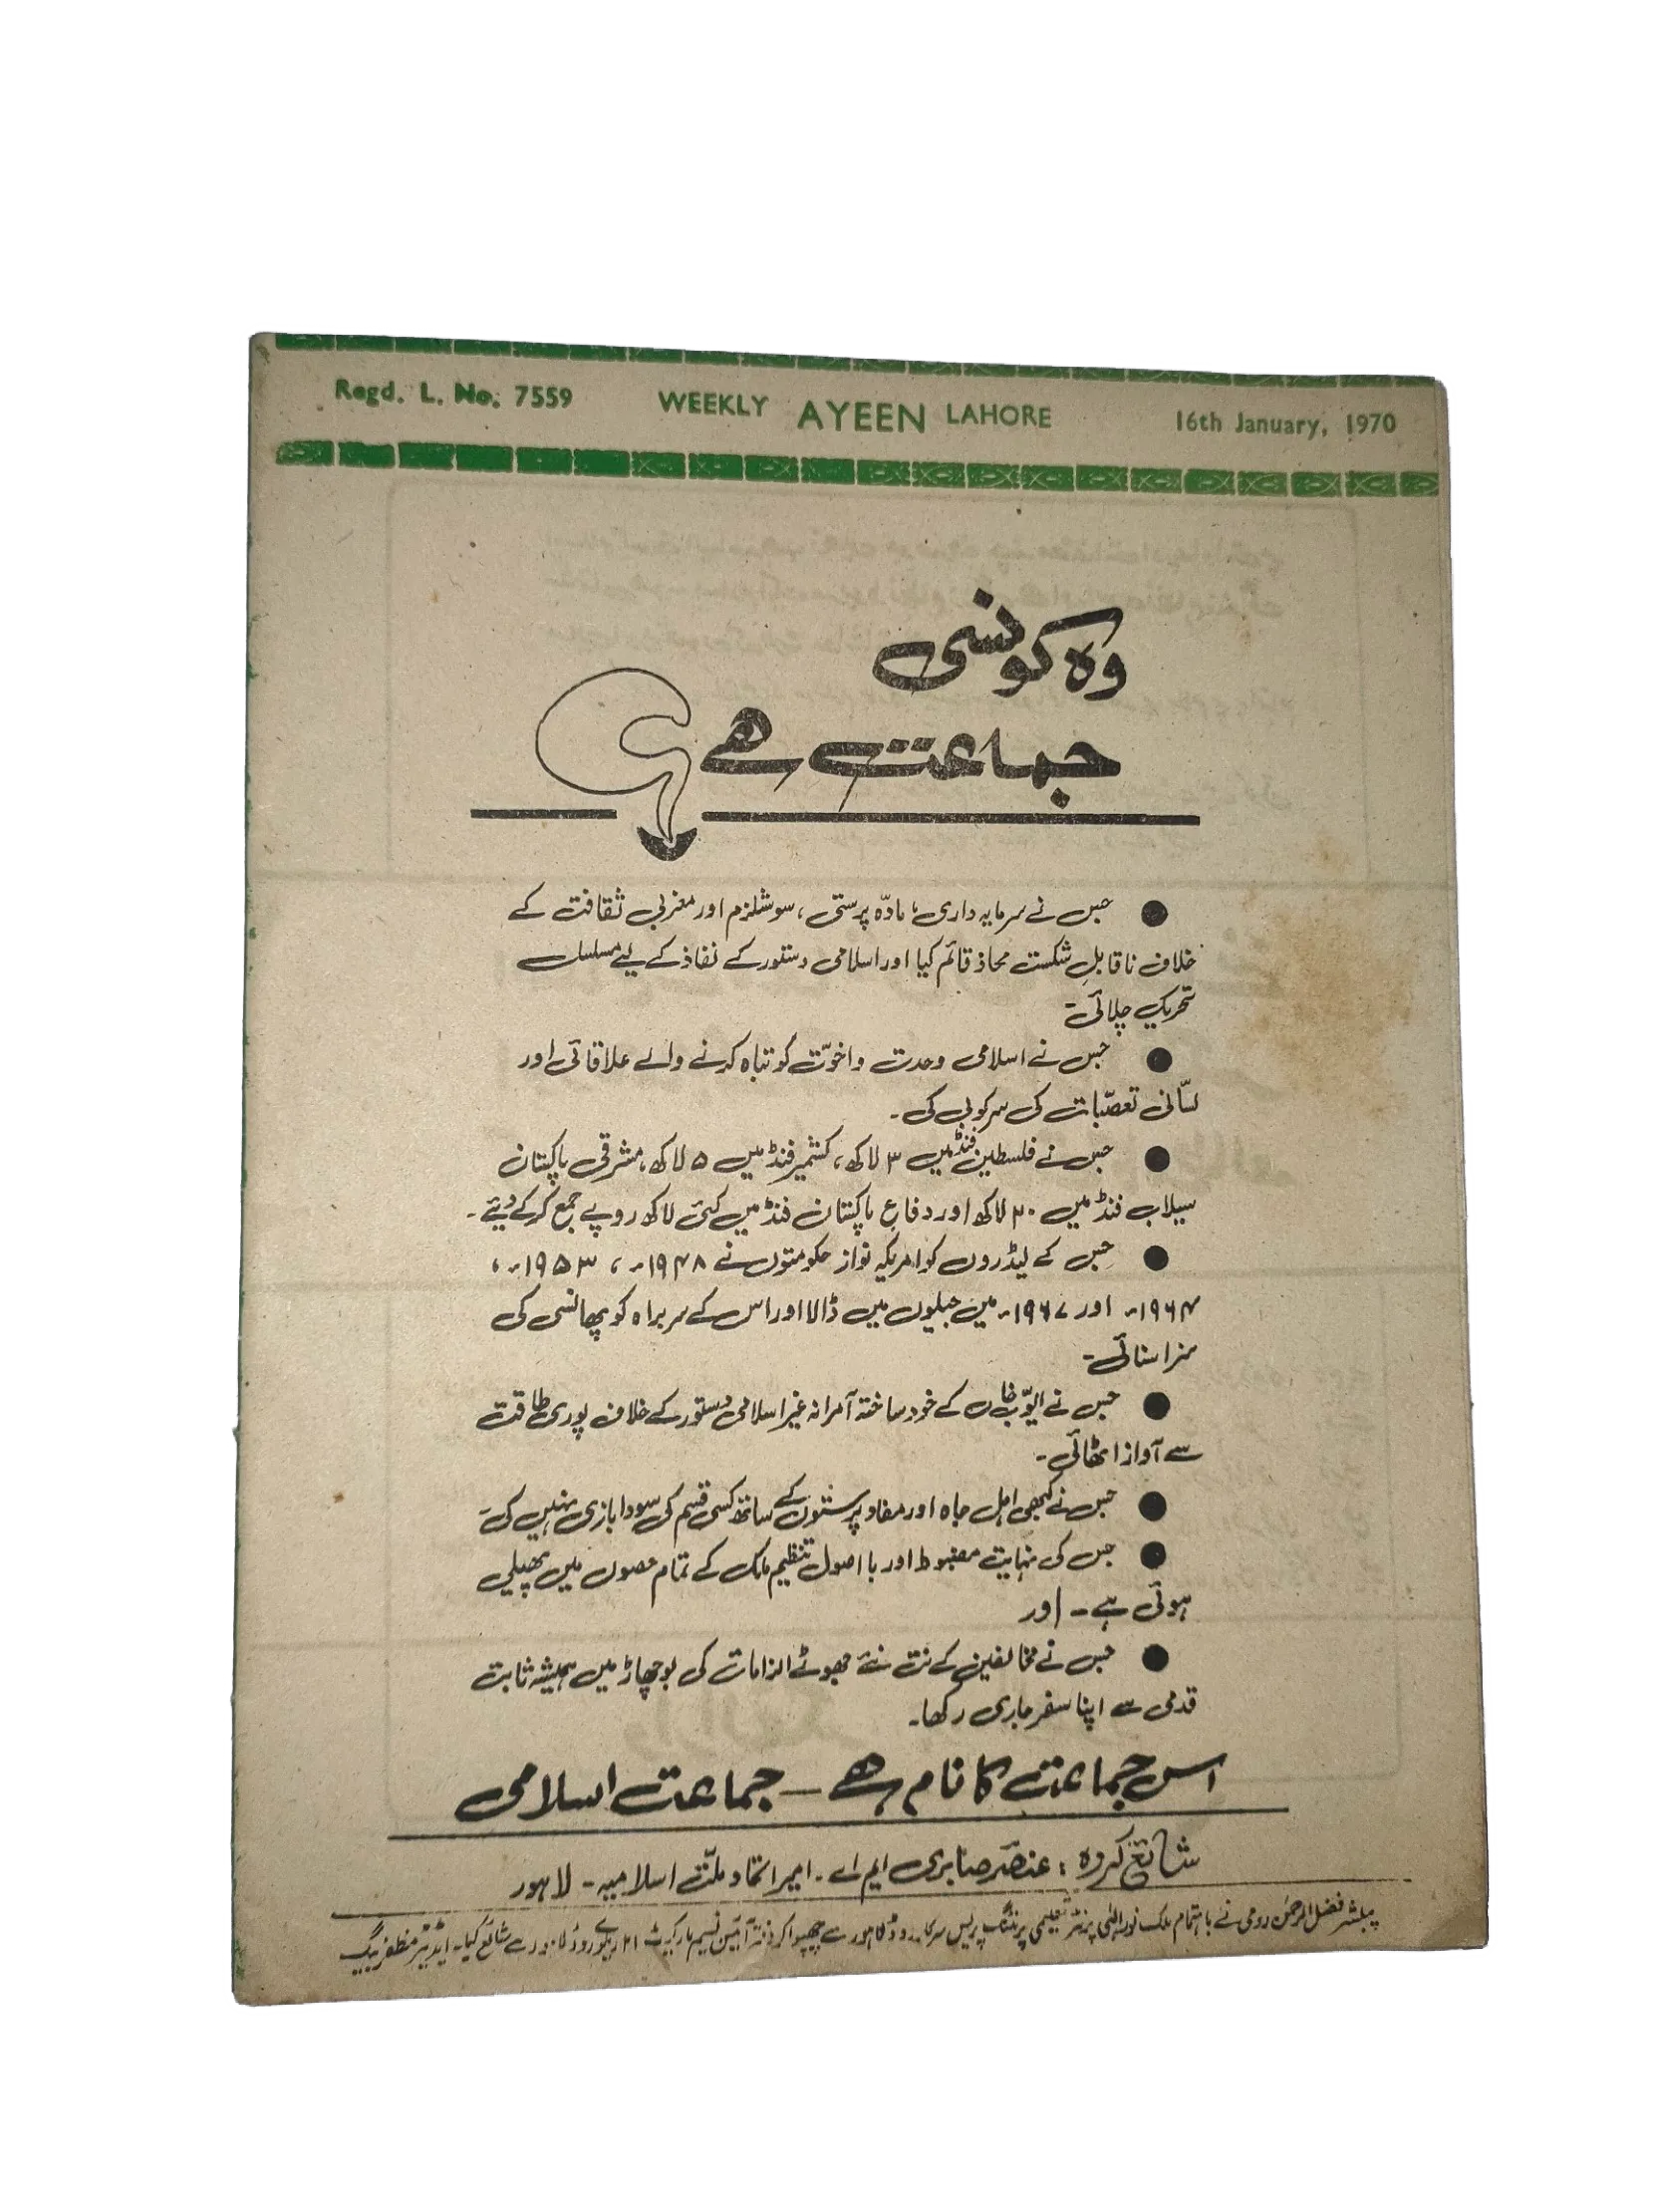 Regd. L. No. 7559 WEEKLY AYEEN LAHORE 16th January, 1970
وہ کونسی
جماعت ہے؟
● جس نے سرمایہ داری، مادّہ پرستی، سوشلزم اور مغربی ثقافت کے
خلاف ناقابلِ شکست محاذ قائم کیا اور اسلامی دستور کے نفاذ کے لیے مسلسل
تحریک چلائی۔
● جس نے اسلامی وحدت و اخوّت کو تباہ کرنے والے علاقائی اور
لسّانی تعصّبات کی سرکوبی کی۔
● جس نے فلسطین فنڈ میں ۳ لاکھ، کشمیر فنڈ میں ۵ لاکھ، مشرقی پاکستان
سیلاب فنڈ میں ۲۰ لاکھ اور دفاعِ پاکستان فنڈ میں کئی لاکھ روپے جمع کر کے دیئے۔
● جس کے لیڈروں کو امریکہ نواز حکومتوں نے ۱۹۴۸ء، ۱۹۵۳ء،
۱۹۶۴ء اور ۱۹۶۷ء میں جیلوں میں ڈالا اور اس کے سربراہ کو پھانسی کی
سزا سنائی۔
● جس نے ایوّب خاں کے خود ساختہ آمرانہ غیر اسلامی دستور کے خلاف پوری طاقت
سے آواز اٹھائی۔
● جس نے کبھی اہل جاہ اور مفاد پرستوں کے ساتھ کسی قسم کی سودا بازی نہیں کی۔
● جس کی نہایت مضبوط اور با اصول تنظیم ملک کے تمام حصوں میں پھیلی
ہوئی ہے۔ اور
● جس نے مخالفین کے نت نئے جھوٹے الزامات کی بوچھاڑ میں ہمیشہ ثابت
قدمی سے اپنا سفر جاری رکھا۔
اس جماعت کا نام ہے — جماعت اسلامی
شائع کردہ : عنصر صابری ایم اے۔ امیر اتحاد ملّت اسلامیہ۔ لاہور
پبلشر فضل الرحمٰن رومی نے باہتمام ملک نور الٰہی پرنٹر تعلیمی پرنٹنگ پریس سرکلر روڈ لاہور سے چھپوا کر دفتر آئین نسیم مارکیٹ ۲۱ ریلوے روڈ لاہور سے شائع کیا۔ ایڈیٹر مظفر بیگ